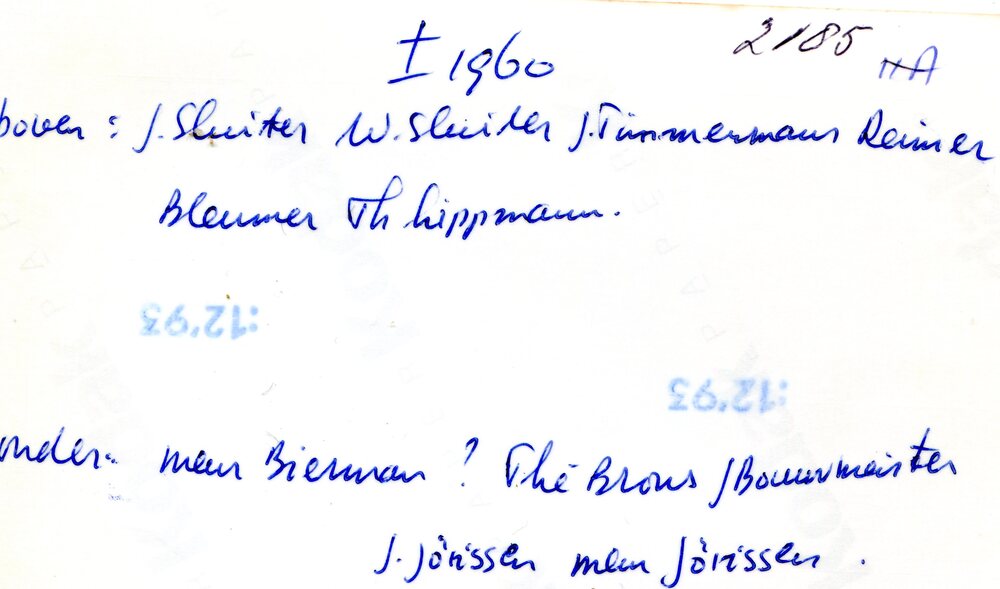 ± 1960
2185 HA
boven: J. Sluiter W. Sluiter J. Timmermans Reimer
Bleumer Th Lippmann.
:12'93
:12'93
onder: mevr Bierman ? Thé Brons J Bouwmeister
J. Jörissen mevr Jörissen.